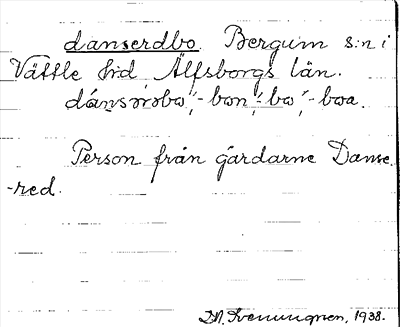 danserdbo. Bergum s:n i
Vättle hd Älfsborgs län.
dánsərəbo, -bon, -bo, -boa.
Person från gårdarne Danse-
-red.
1938.